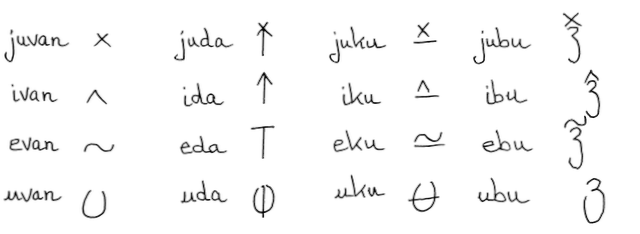 juvan × juda juku jubu
ivan ida iku ibu
evan eda eku ebu
uvan uda uku ubu